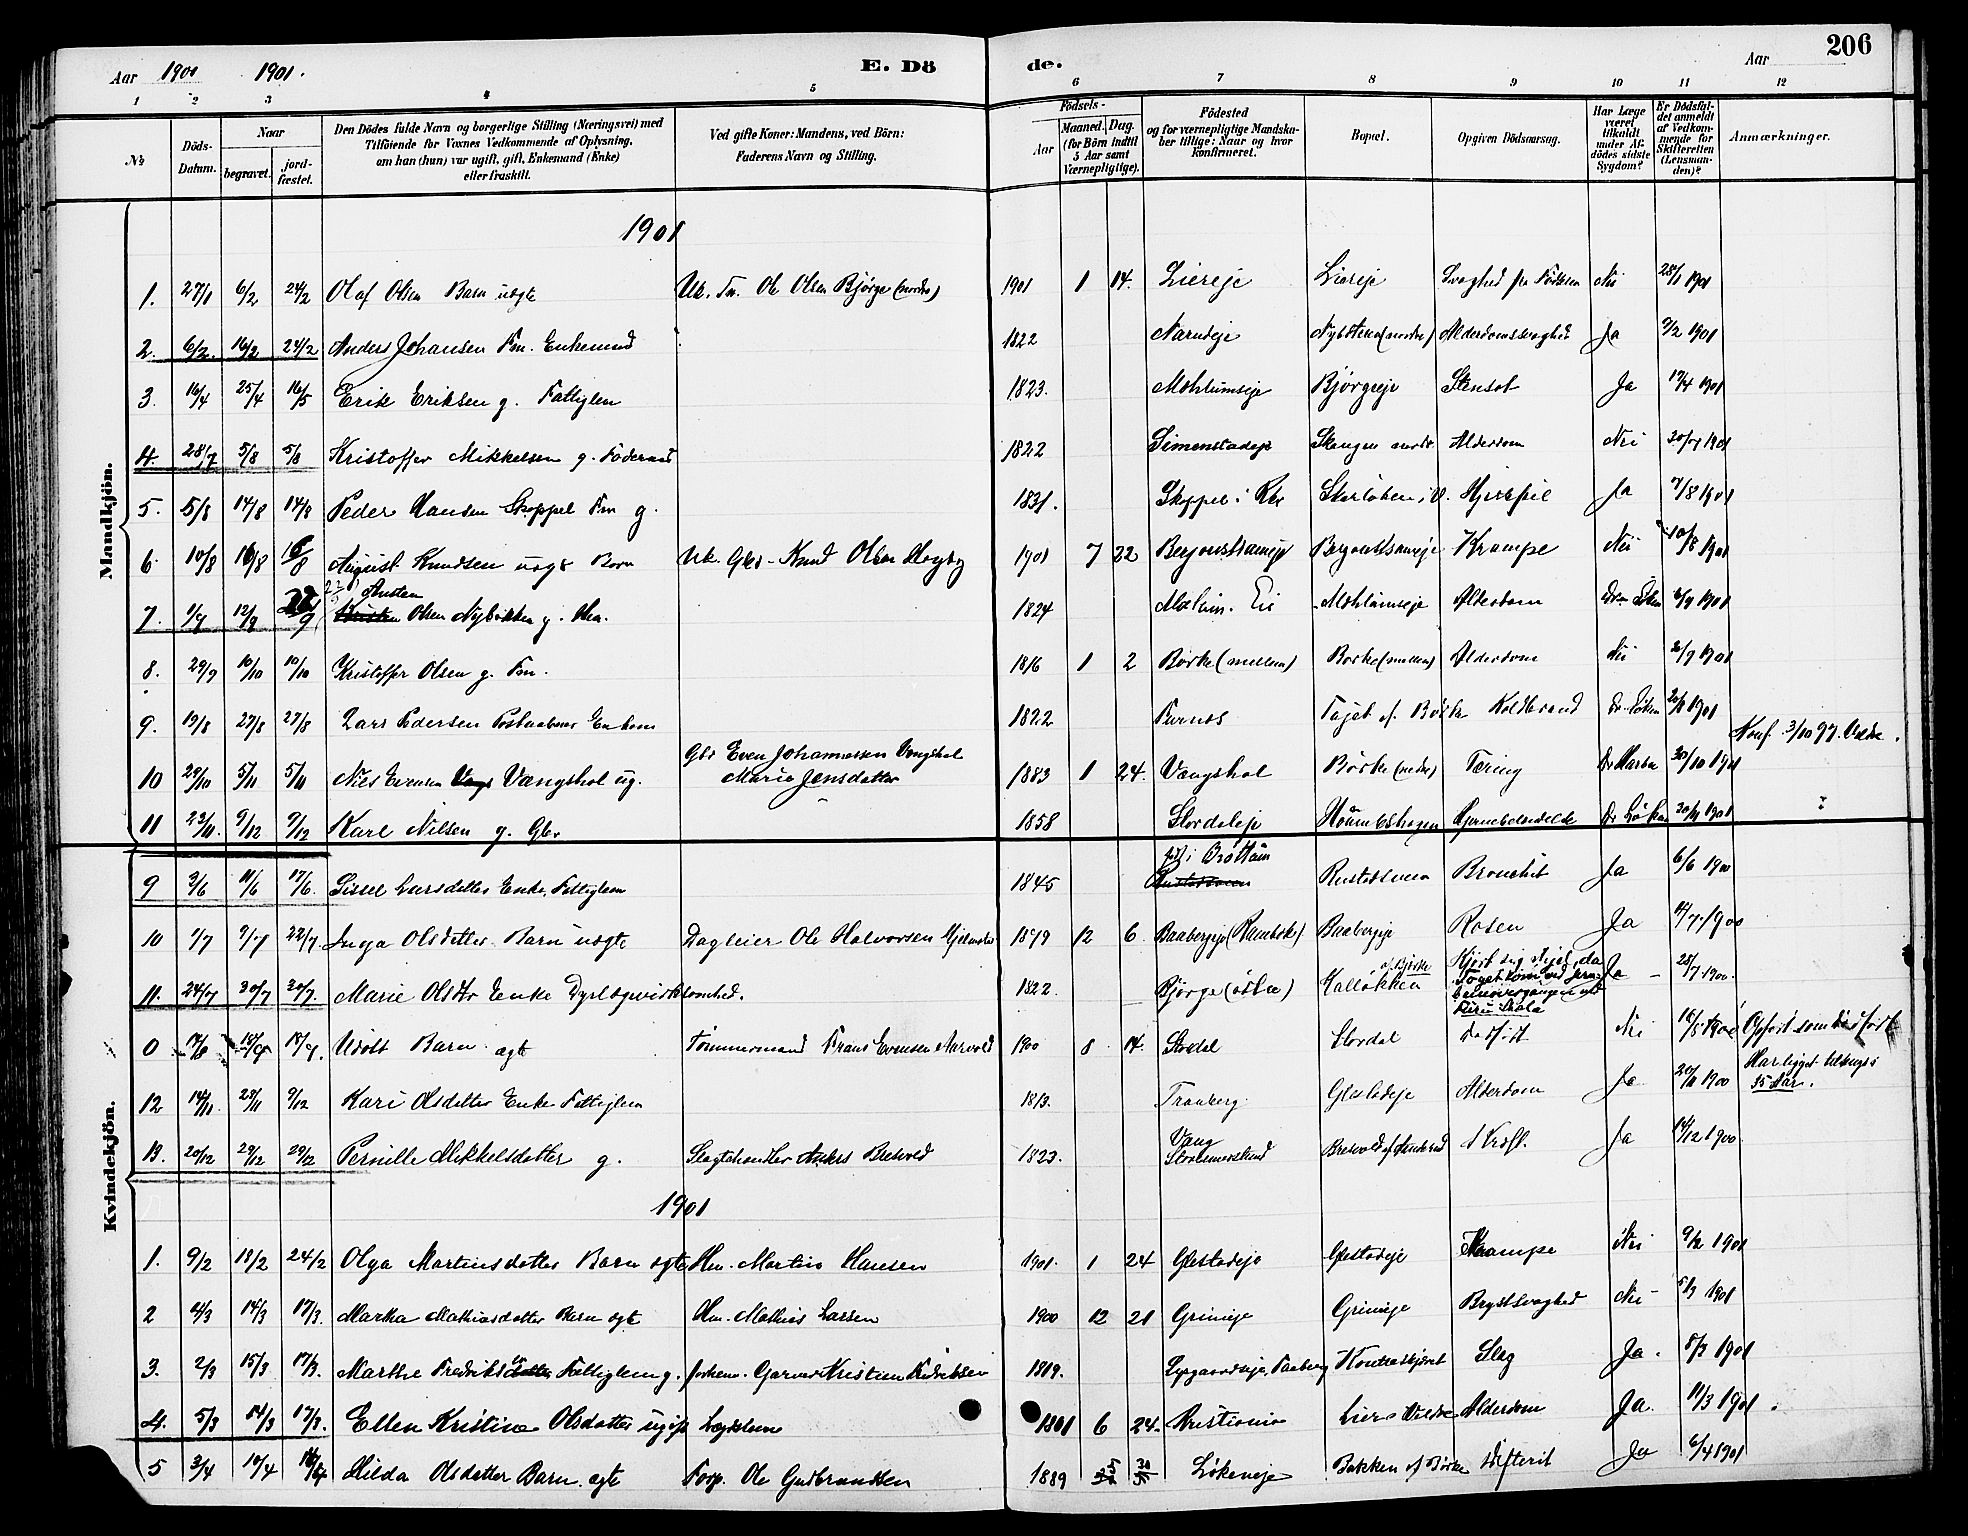 Aar 1900 1901. E. Dö de. Aar 206
1 2 3 4 5 6 7 8 9 10 11 12
No Döds-Datum. Naar begravet. jordfæstet. Den Dödes fulde Navn og borgerlige Stilling (Næringsvei) med Tilföiende for Voxnes Vedkommende af Oplysning, om han (hun) var ugift, gift, Enkemand (Enke) eller fraskilt. Ved gifte Koner: Mandens, ved Börn: Faderens Navn og Stilling. Födsels- Aar Maaned. Dag. (for Börn indtil 5 Aar samt Værnepligtige). Födested og for værnepligtige Mandskaber tillige: Naar og hvor konfirmeret. Bopæl. Opgiven Dödsaarsag. Har Læge været tilkaldt under Afdödes sidste Sygdom? Er Dödsfaldet anmeldt af Vedkommende for Skifteretten (Lensmanden)? Anmærkninger.
Mandkjön.
1901
1. 27/1 6/2 24/2 Olaf Olsen Barn uægte Uk. Fm. Ole Olsen Bjørge (nordre) 1901 1 14. Liereje Liereje Svaghed fra Fødselen Nei 28/1 1901
2. 6/2 16/2 24/2 Anders Johansen Fm. Enkemand 1822 Narudeje Alderdomssvaghed Ja 9/2 1901
3. 16/4 25/4 16/5 Erik Eriksen g. Fattiglem 1823. Mohlumseje Bjørgeeje Stensot Ja 17/4 1901
4. 28/7 5/8 5/8 Kristoffer Mikkelsen g. Føderaad 1822 Simenstadeje Skougen nordr Alderdom Nei 30/7 1901
5. 5/8 14/8 14/8 Peder Hansen Skoppel Fm g. 1831. Skoppel i Rbr Hjertefeil Ja 7/8 1901
6. 10/8 16/8 16/8 August Knudsen uægt Barn Uk. Gbr. Knud Olsen 1901 7 22 Krampe Nei 10/8 1901
7. 1/9 12/9 22/9 Austen Olsen Nybakken g. 1824 Mohlum. Eie Mohlumseje Alderdom Dr. Løken 6/9 1901
8. 29/9 10/10 10/10 Kristoffer Olsen g. Fm. 1816 1 2 Børke (mellem) Børke (mellem) Alderdom Nei 2/9 1901
9. 19/8 27/8 27/8 Lars Pedersen Postaabner Enkem 1822 Furnes Tajet af Børke Koldbrand Dr. Løken 20/8 1901
10 29/10 5/11 5/11 Nils Evensen Vangshol ug. Gbr Even Johannessen Vangshol Marie Jensdatter 1883 1 24. Vangshol Børke (nedre) Tæring Dr 30/10 1901 Konf. 3/10 97. Veldre.
11 23/11. 9/12 9/12 Karl Nilsen g. Gbr 1858 Stordaleje Hjernebetændelse Dr Løken 30/11 1901
Kvindekjön.
9 3/6 11/6 17/6. Sissel Larsdatter Enke. Fattiglem 1845 født i Brøttum Rustadsveen Bronchit Ja 6/6 1900
10 1/7 9/7 22/7. Inga Olsdatter Barn uægte Dagleier Ole Halvorsen 1899 12 6. Baabergeje Baabergeje Rosen Ja 12/7 1900
11. 24/7 30/7 30/7. Marie Olsdtr Enke Dyrlægevirksomhed. 1822. Bjørge (østre) Kalløkken af Børke Kjørt sig ihjel, da Toget kom ved Jernbaneovergangen ved Ja 28/7 1900.
0 Udøbt Barn ægte Tømmermand Frans Evensen Narvold 1900 8 14. Stordal Stordal Dødfødt Nei 16/8 1900 Opført som dødfødt
12 14/11. 23/11 9/12 Kari Olsdatter Enke Fattiglem 1813. Tranberg. Glestadeje Alderdom Ja 20/11 1900 Har ligget tilsengs 35 Aar.
13. 20/12 29/12 29/12 Pernille Mikkelsdatter g. Slagtehandler Anders Bredvold 1823. Vang Bredvold af Kræft. Ja 1900.
1901
1. 9/2 18/2 24/2 Olga Martinsdatter Barn ægte Hm. Martin Hansen 1901. 1 24 Glestadeje Glestadeje Krampe Nei 9/2 1901
2 4/3 14/3 17/3. Martha Mathiasdatter Barn ægte Hm. Mathias Larsen 1900 12 21 Grimeje Grimeje Brystsvaghed Nei 5/3 1901
3. 2/3 15/3 17/3. Marthe Fredriksdatter Fattiglem g. forhenv. Garver Kristian Fredriksen 1819. Lysgaardseje, Faaberg Slag Ja. 5/3 1901
4. 5/3 14/3 17/3. Ellen Kristine Olsdatter ugift Lægdslem 1801 6 24. Kristiania Lier i Veldre Alderdom Ja. 11/3 1901.
5 3/4 10/4 Hilda Olsdatter Barn. ægte Forp. Ole Gudbrandsen 1889 Løkeneje Bakken af Børke Difterit Ja 6/4 1901